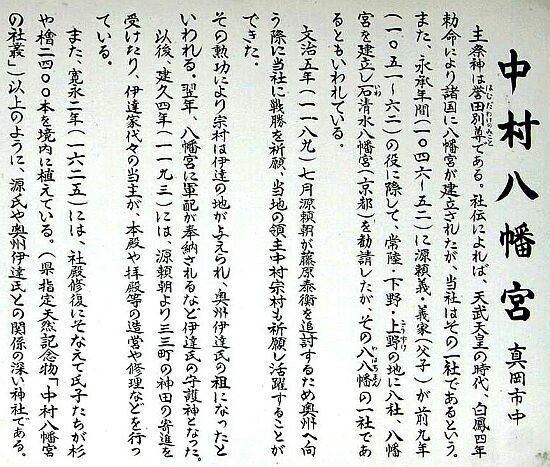 中村八幡宮 真岡市中
主祭神は誉田別尊である。社伝によれば、天武天皇の時代、白鳳四年
勅命により諸国に八幡宮が建立されたが、当社はその一社であるという。
また、永承年間(一〇四六~五二)に源頼義・義家(父子)が前九年
(一〇五一~六二)の役に際して、常陸・下野・上野の地に八社、八幡
宮を建立し石清水八幡宮(京都)を勧請したが、その八八幡の一社であ
るともいわれている。
文治五年(一一八九)七月源頼朝が藤原泰衡を追討するため奥州へ向
う際に当社に戦勝を祈願、当地の領主中村宗村も祈願し活躍することが
できた。
その勲功により宗村は伊達の地が与えられ、奥州伊達氏の祖になったと
いわれる。翌年、八幡宮に軍配が奉納されるなど伊達氏の守護神となった。
以後、建久四年(一一九三)には、源頼朝より三三町の神田の寄進を
受けたり、伊達家代々の当主が、本殿や拝殿等の造営や修理などを行っ
ている。
また、寛永二年(一六二五)には、社殿修復にそなえて氏子たちが杉
や檜二四〇〇本を境内に植えている。(県指定天然記念物「中村八幡宮
の社叢」)以上のように、源氏や奥州伊達氏との関係の深い神社である。